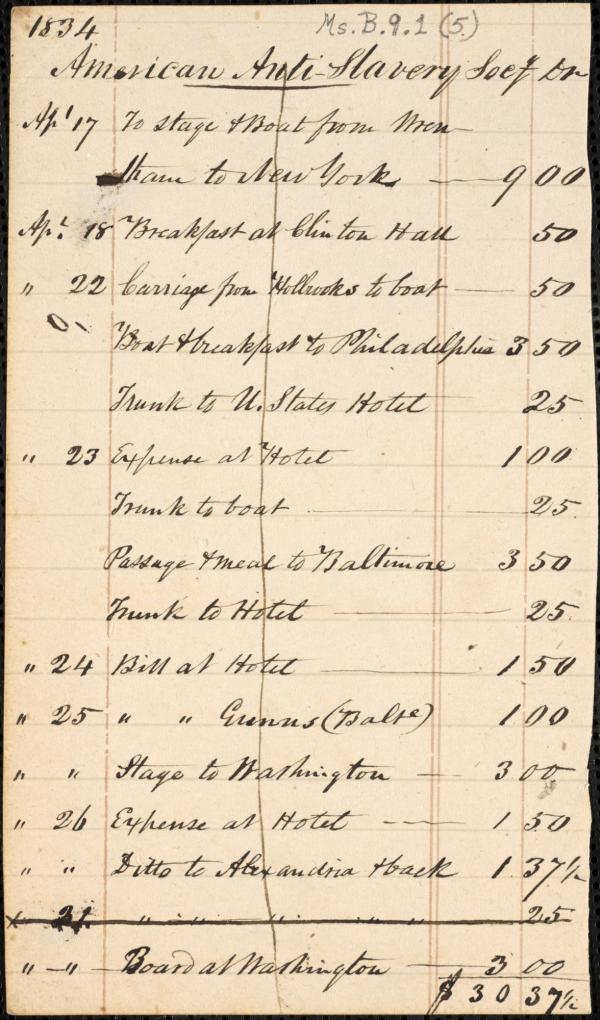 1834
Ms. B. 9. 1 (5.)
American Anti-Slavery Socy Dr
Apl 17 To stage & Boat from Wren-
tham to New York — 9 00
Apl. 18 Breakfast at Clinton Hall 50
" 22 Carriage from Holbrooks to boat — 50
Boat & breakfast to Philadelphia 3 50
Trunk to U. States Hotel 25
" 23 Expense at Hotel 1 00
Trunk to boat — 25
Passage & meal to Baltimore 3 50
Trunk to Hotel — 25
" 24 Bill at Hotel — 1 50
" 25 " " Gunns (Balte) 1 00
" " Stage to Washington — 3 00
" 26 Expense at Hotel - - - - 1 50
" " Ditto to Alexandria & back 1 37½
" 21 " " " " " 25
" — " — Board at Washington — 3 00
$ 30 37½